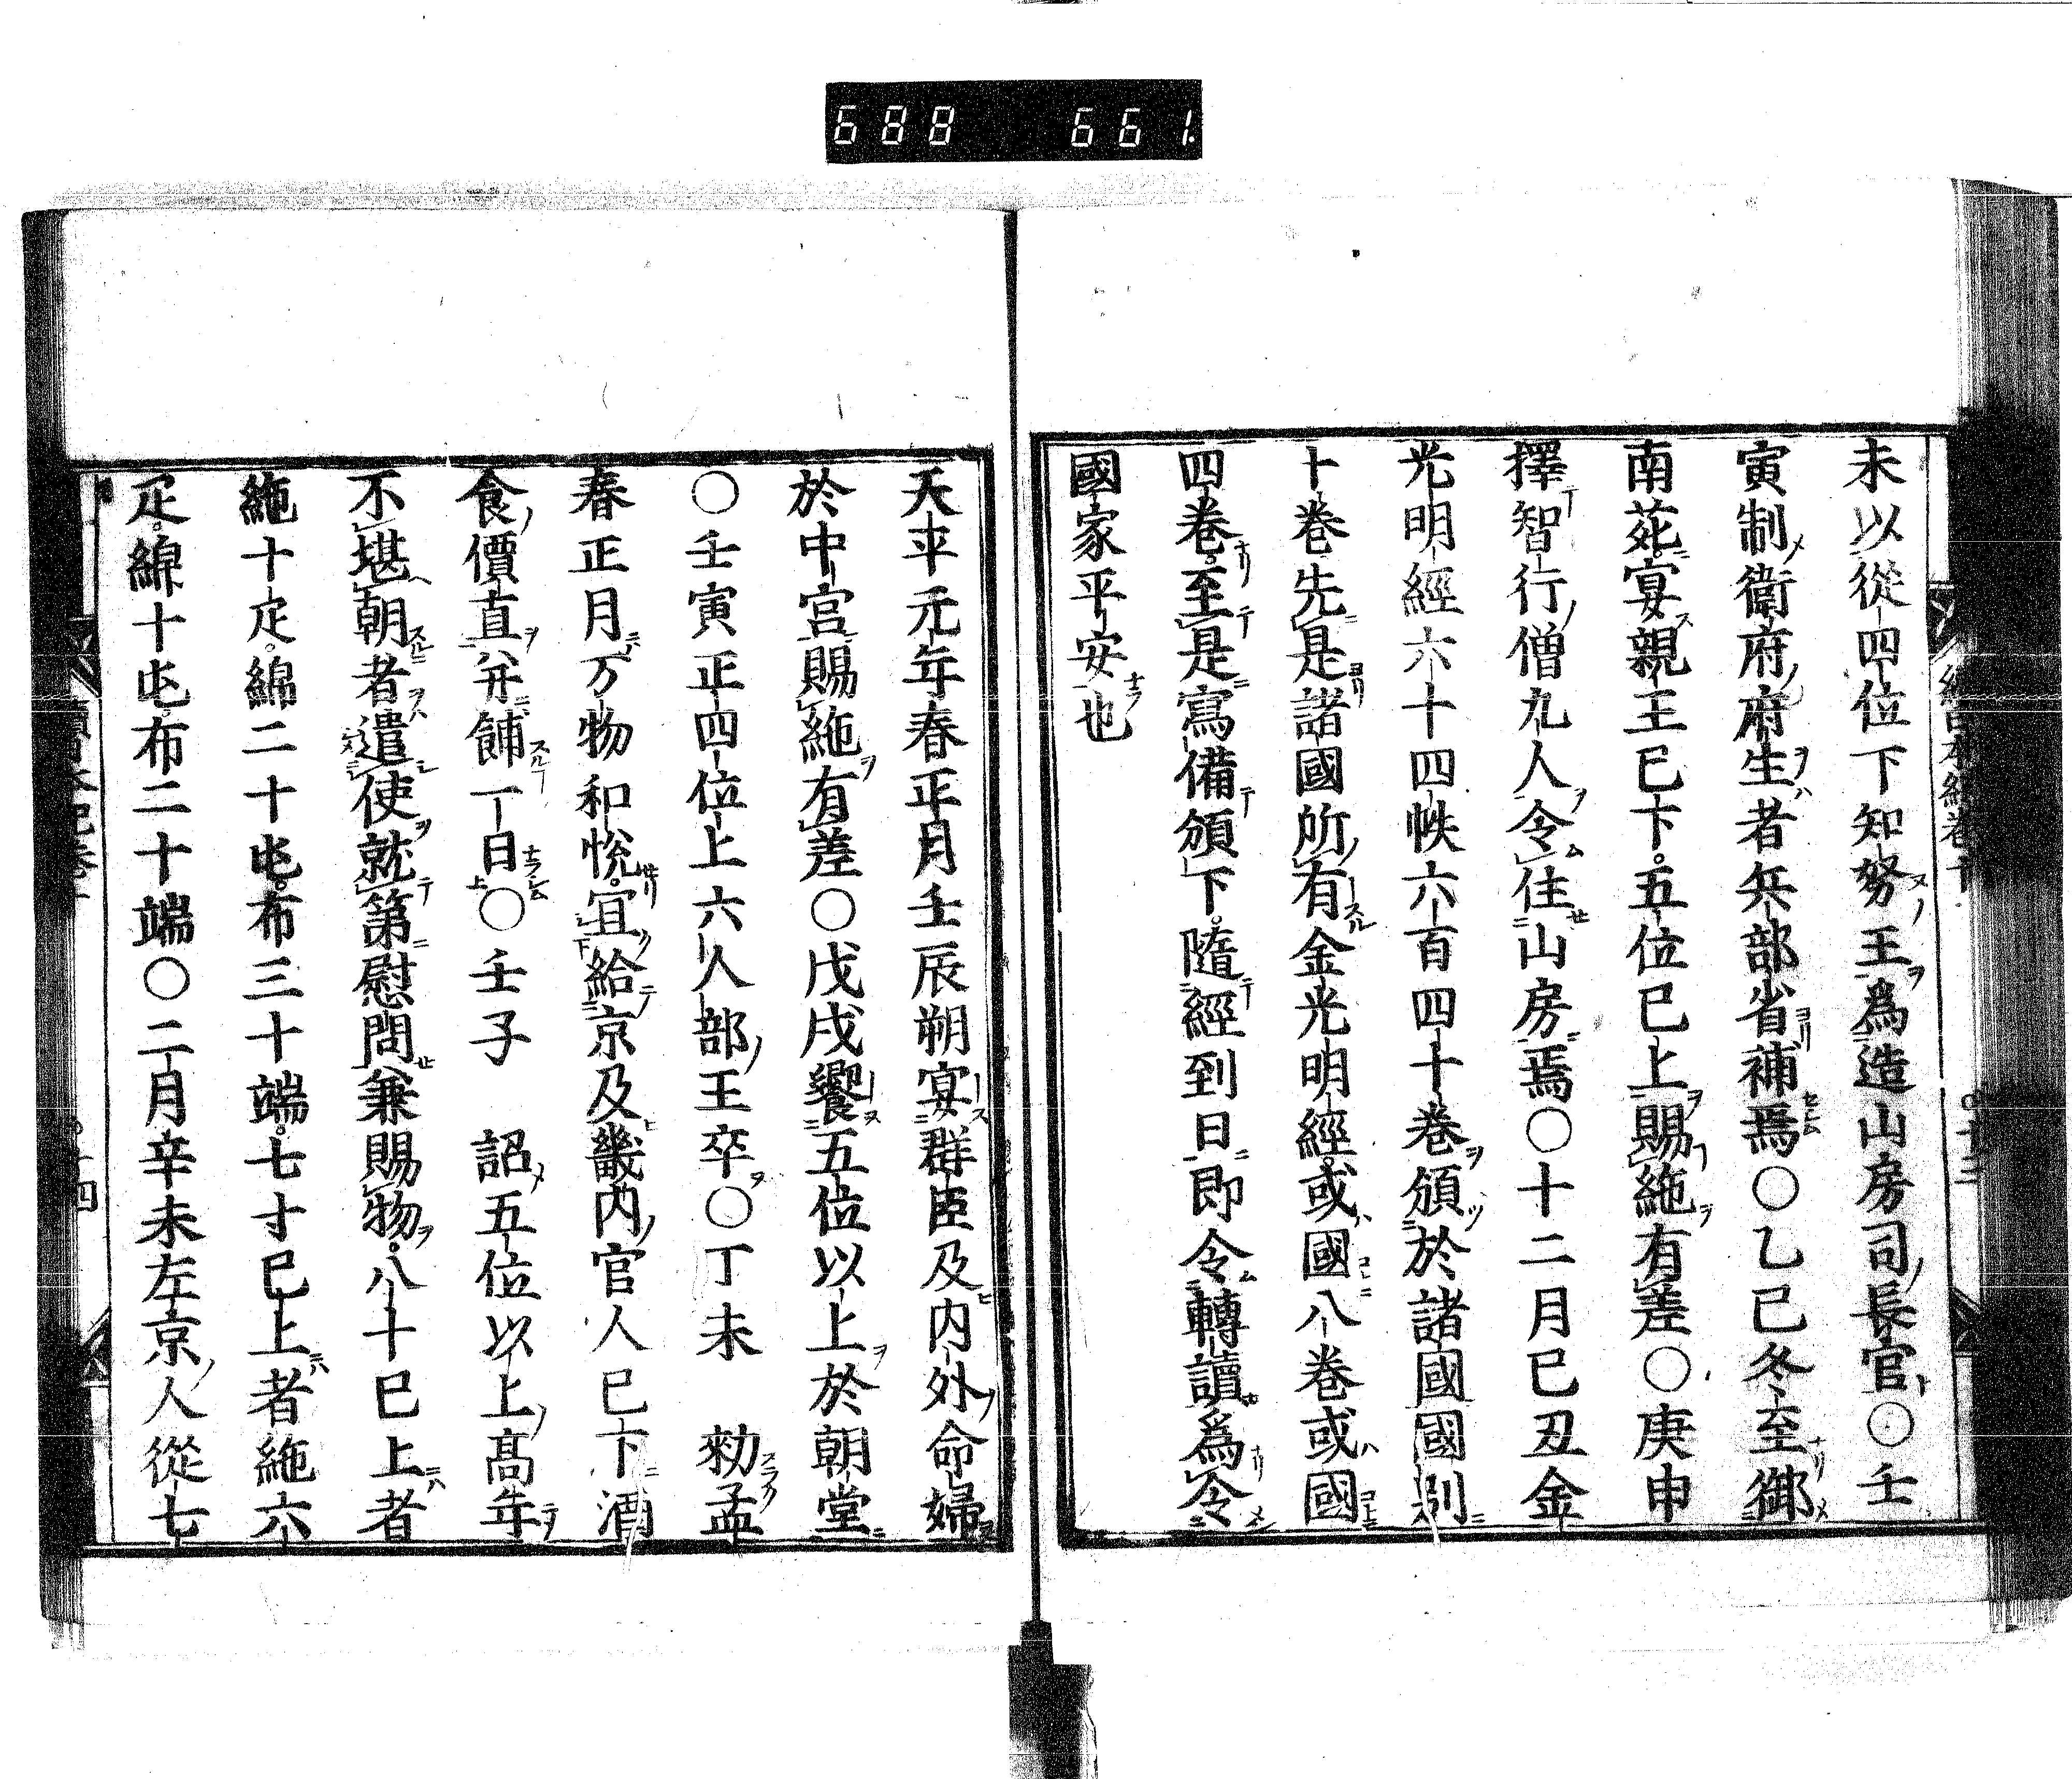 688 661
未以從四位下知努王爲造山房司長官○壬
寅制衛府府生者兵部省補焉○乙巳冬至御
南苑宴親王已下五位已上賜絁有差○庚申
擇智行僧九人令住山房焉○十二月己丑金
光明經六十四帙六百四十卷頒於諸國國別
十卷先是諸國所有金光明經或國八卷或國
四卷至是寫備頒下隨經到日即令轉讀爲令
國家平安也
天平元年春正月壬辰朔宴群臣及内外命婦
於中宮賜絁有差○戊戌饗五位以上於朝堂
○壬寅正四位上六人部王卒○丁未 勑孟
春正月万物和悅宜給京及畿内官人已下酒
食價直并餔一日○壬子 詔五位以上高年
不堪朝者遣使就第慰問兼賜物八十已上者
絁十疋綿二十屯布三十端七十已上者絁六
疋綿十屯布二十端○二月辛未左京人從七